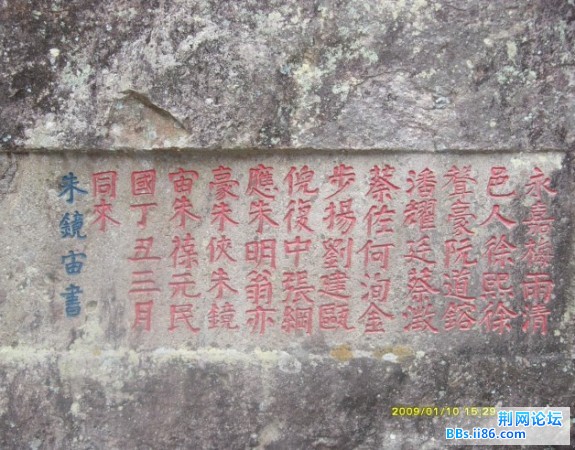 永嘉施雨清
邑人徐熙徐
聲豪阮道鎔
潘耀廷蔡澂
蔡佐何洵金
步揚劉建甌
倪復中張綱
應朱明翁亦
豪朱俠朱鏡
宙朱葆元民
國丁丑三月
同來
朱鏡宙書
2009/01/10 15:29
荆网论坛
BBs.ii86.com